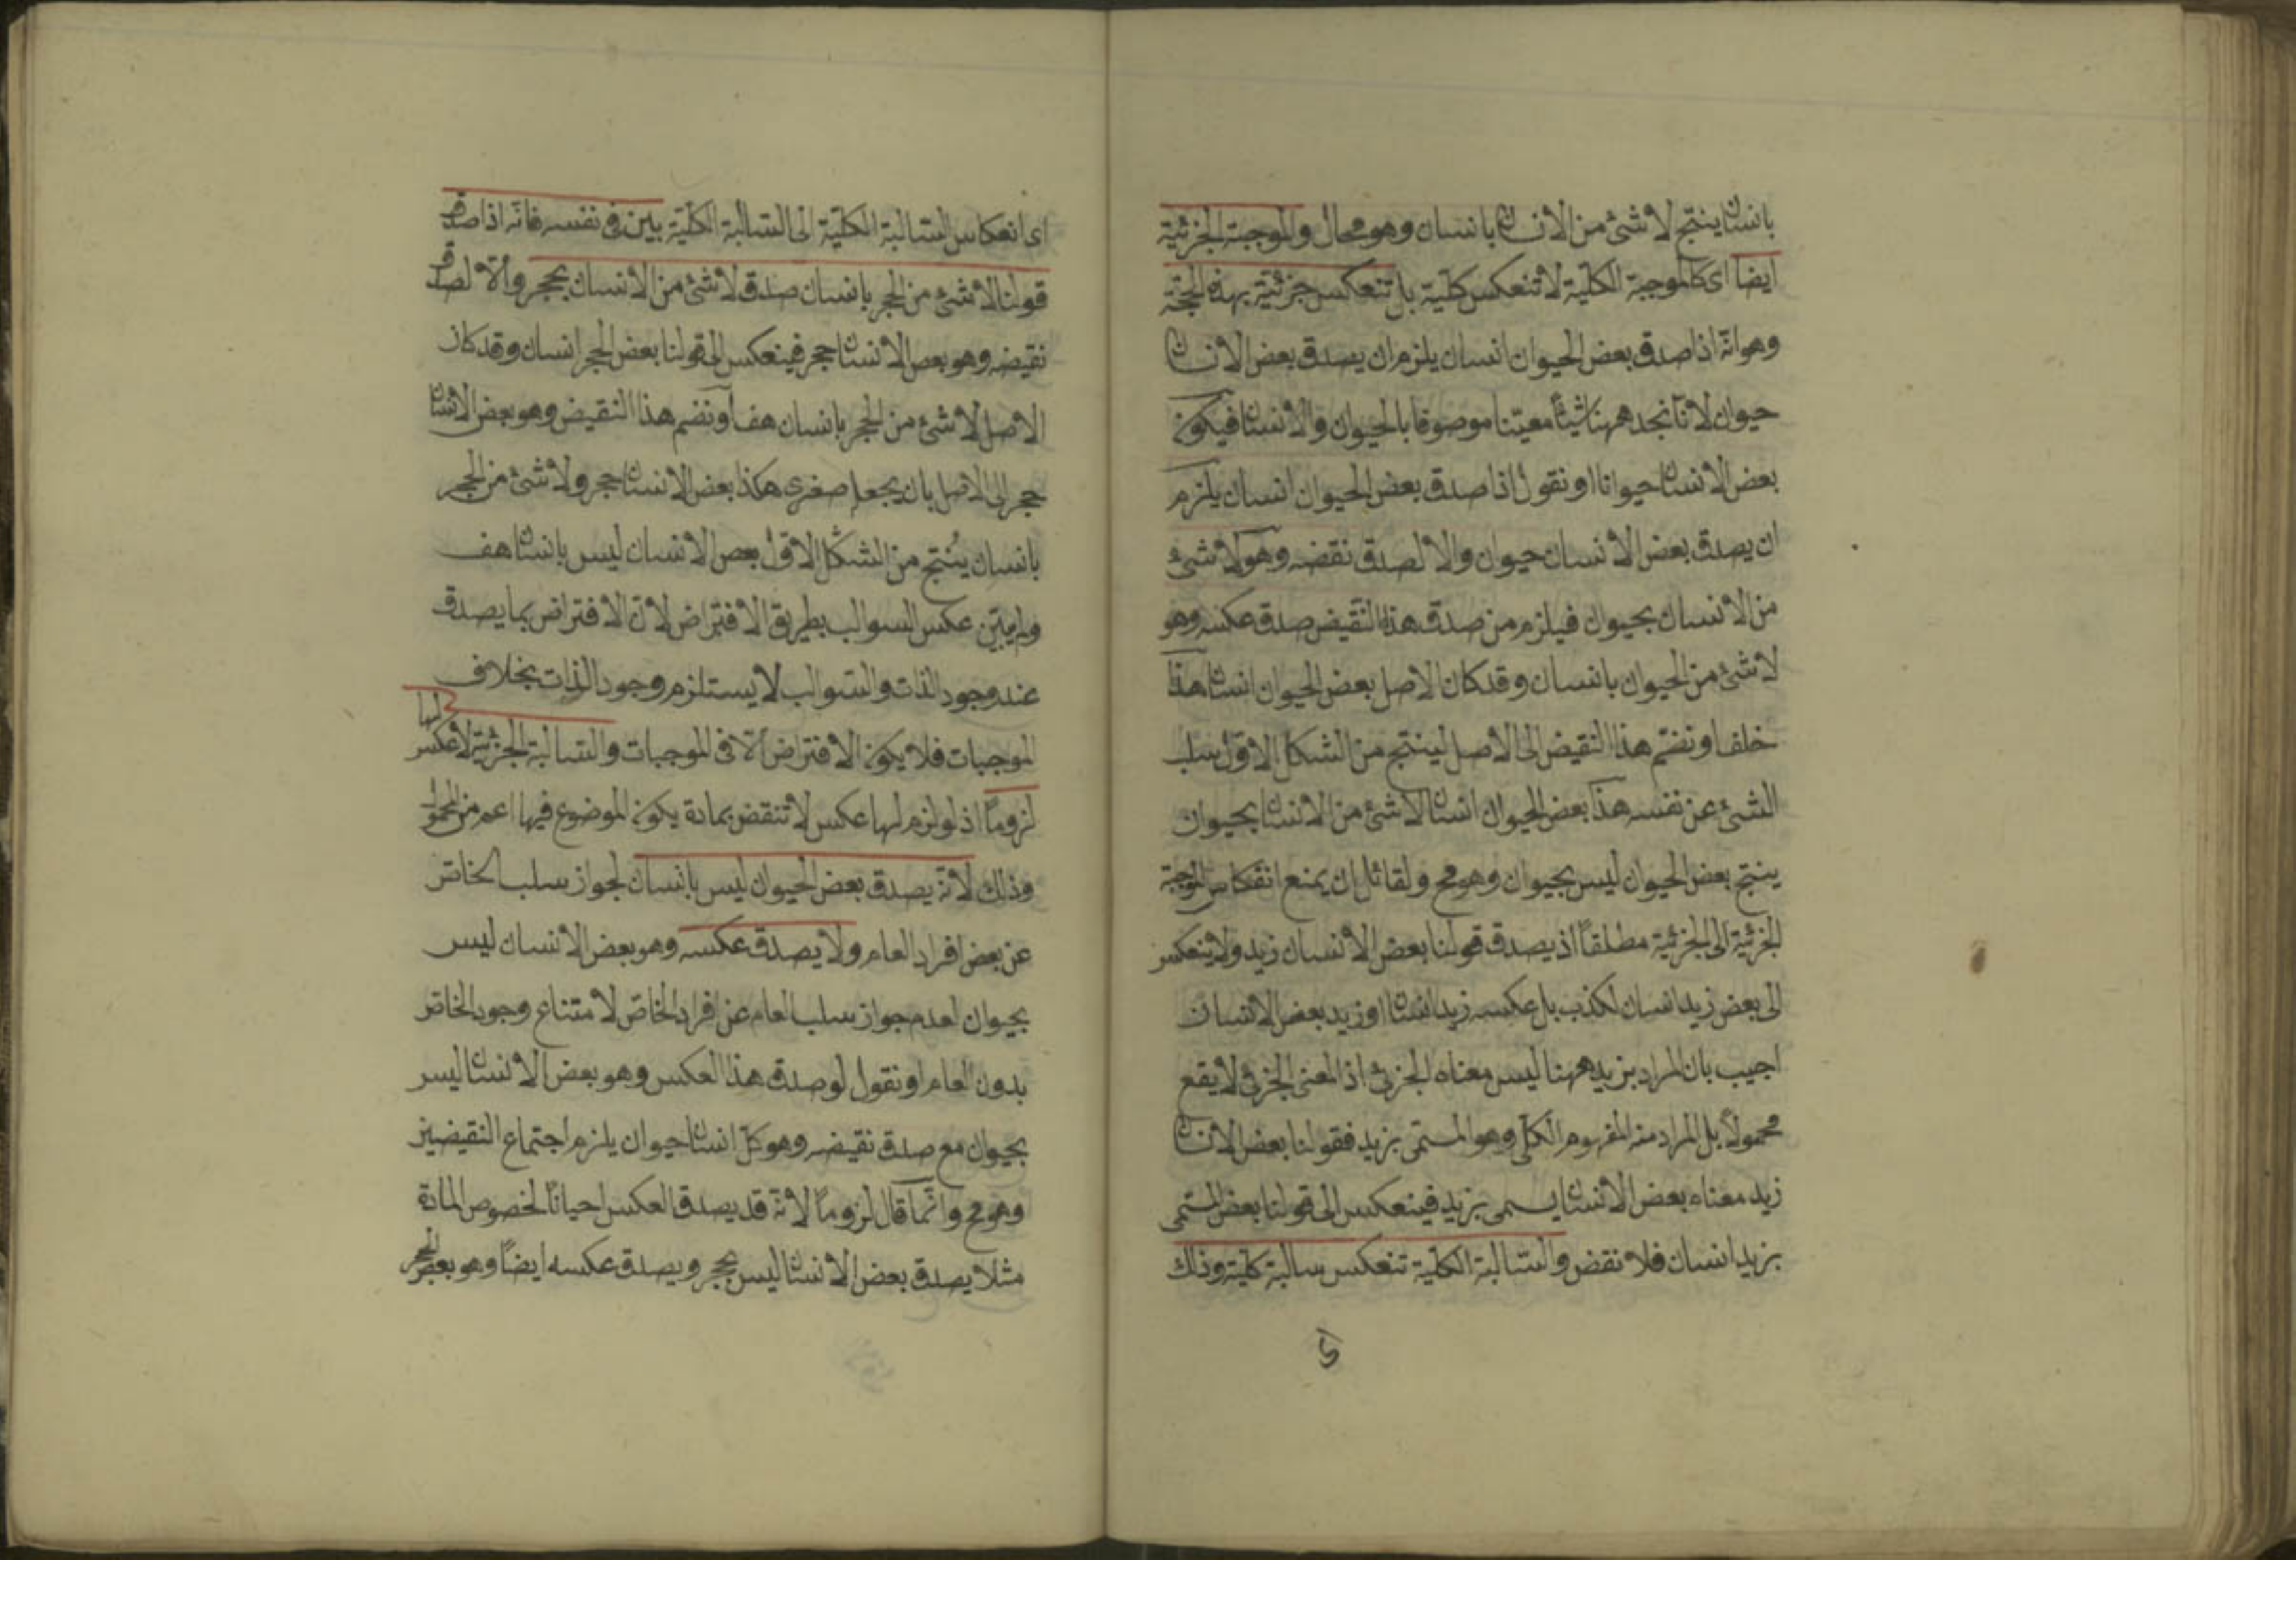 بانسان ينتج لا شئ من الانسان بانسان وهو محال والموجبة الجزئية
ايضا اى كالموجبة الكلية لا تنعكس كلية بل تنعكس جزئية بهذه الحجة
وهو انه اذا صدق بعض الحيوان انسان يلزم ان يصدق بعض الانسان
حيوان لانا نجد ههنا شيئا معينا موصوفا بالحيوان والانسان فيكون
بعض الانسان حيوانا او نقول اذا صدق بعض الحيوان انسان يلزم
ان يصدق بعض الانسان حيوان والا لصدق نقضه وهو لا شئ
من الانسان بحيوان فيلزم من صدق هذا النقيض صدق عكسه وهو
لا شئ من الحيوان بانسان وقد كان الاصل بعض الحيوان انسان هذا
خلف او نضم هذا النقيض الى الاصل لينتج من الشكل الاول سلب
الشئ عن نفسه هكذا بعض الحيوان انسان لا شئ من الانسان بحيوان
ينتج بعض الحيوان ليس بحيوان وهو مح ولقائل ان يمنع انفكاس الموجبة
الجزئية الى الجزئية مطلقاً اذ يصدق قولنا بعض الانسان زيد ولا ينعكس
الى بعض زيد انسان لكذب بل عكسه زيد انسان او زيد بعض الانسان
اجيب بان المراد بزيد ههنا ليس معناه الجزئ اذ المعنى الجزئ لا يقع
محمولاً بل المراد منه المفهوم الكلى وهو المسمى بزيد فقولنا بعض الانسان
زيد معناه بعض الانسان يسمى بزيد فينعكس الى قولنا بعض المسمى
بزيد انسان فلا نقض والسالبة الكلية تنعكس سالبة كلية وذلك
اى انعكاس السالبة الكلية الى السالبة الكلية بين فى نفسه فانه اذا صدق
قولنا لا شئ من الحجر بانسان صدق لا شئ من الانسان بحجر والا لصدق
نقيضه وهو بعض الانسان حجر فينعكس الى قولنا بعض الحجر انسان وقد كان
الاصل لا شئ من الحجر بانسان هف او نضم هذا النقيض وهو بعض الانسان
حجر الى الاصل بان يجعل صغرى هكذا بعض الانسان حجر ولا شئ من الحجر
بانسان ينتج من الشكل الاول بعض الانسان ليس بانسان هف
ولم يبين عكس السوالب بطريق الافتراض لان الافتراض بما يصدق
عند وجود الذات والسوالب لا يستلزم وجود الذات بخلاف
الموجبات فلا يكون الافتراض الا فى الموجبات والسالبة الجزئية لا عكس لها
لزوماً اذ لو لزم لها عكس لا تنقض بمادة يكون الموضوع فيها اعم من المحمول
وذلك لانه يصدق بعض الحيوان ليس بانسان لجواز سلب الخاص
عن بعض افراد العام ولا يصدق عكسه وهو بعض الانسان ليس
بحيوان لعدم جواز سلب العام عن افراد الخاص لامتناع وجود الخاص
بدون العام او نقول لو صدق هذا العكس وهو بعض الانسان ليس
بحيوان مع صدق نقيضه وهو كل انسان حيوان يلزم اجتماع النقيضين
وهو مح وانما قال لزوماً لانه قد يصدق العكس احياناً لخصوص المادة
مثلا يصدق بعض الانسان ليس بحجر ويصدق عكسه ايضاً وهو بعض الحجر